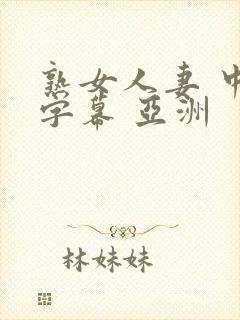 熟女人妻 中
字幕 亞洲
林妹妹